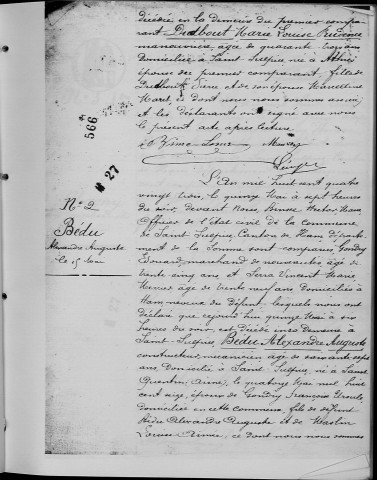 décédée en la demeure du premier compa-
rant Dudbout Marie Louise Prudence
manouvrière, âgée de quarante trois ans
domiciliée à Saint Sulpice née à Athies
épouse du premier comparant, fille de
Pierre et de son épouse
dont nous nous sommes assuré
et les déclarants ont signé avec nous
le présent acte après lecture
566
№ 27
L'An mil huit cent quatre
vingt trois, le quinze Mai à sept heures
du soir, devant Nous
Officier de l'état civil de la commune
de Saint Sulpice, Canton de Ham, départe-
ment de la Somme sont comparus Gondry
Edouard, marchand de nouveautés âgé de
trente cinq ans et Serra Vincent Marie
âgé de vingt neuf ans domiciliés à
Ham neveux du défunt, lesquels nous ont
déclaré que cejourd'hui quinze Mai à six
heures du soir, est décédé en sa demeure à
Saint Sulpice, Bédu Alexandre Auguste
constructeur mécanicien âgé de soixante sept
ans, domicilié à Saint Sulpice, né à Saint
Quentin, Aisne, le quatorze Mai mil huit
cent seize, époux de Gondry François Ursule
domiciliée en cette commune, fils de défunt
Bédu Alexandre Auguste et de Wastin
Louise Aimée, ce dont nous nous sommes
No 2
Bédu
Alexandre Auguste
le 15 Mai